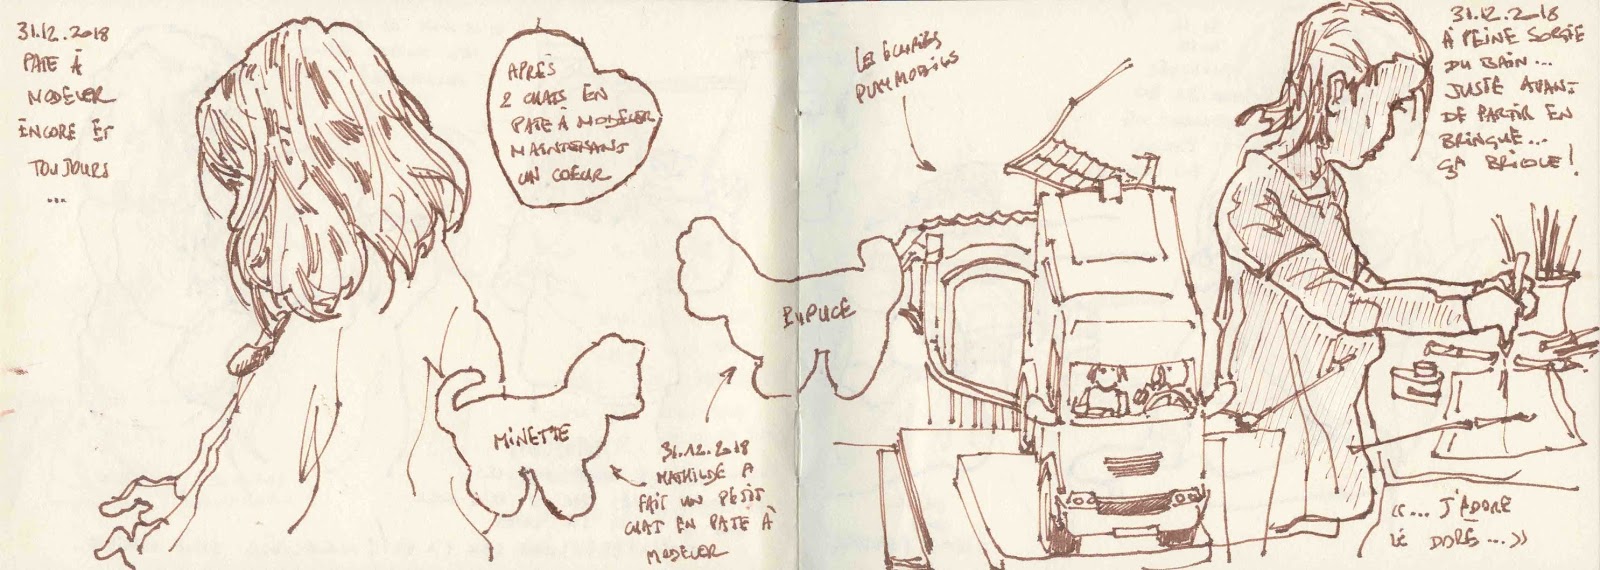 31.12.2018
PATE À
MODELER
ENCORE ET
TOUJOURS
...
APRÈS
2 CHATS EN
PATE À MODELER
MAINTENANT
UN COEUR
MINETTE
31.12.2018
MATHILDE A
FAIT UN PETIT
CHAT EN PATE À
MODELER
PUPUCE
LES ÉCURIES
PLAYMOBILS
31.12.2018
À PEINE SORTIE
DU BAIN...
JUSTE AVANT
DE PARTIR EN
BRINGUE...
ÇA BRICOLE !
«... J'ADORE
LE DORÉ...»